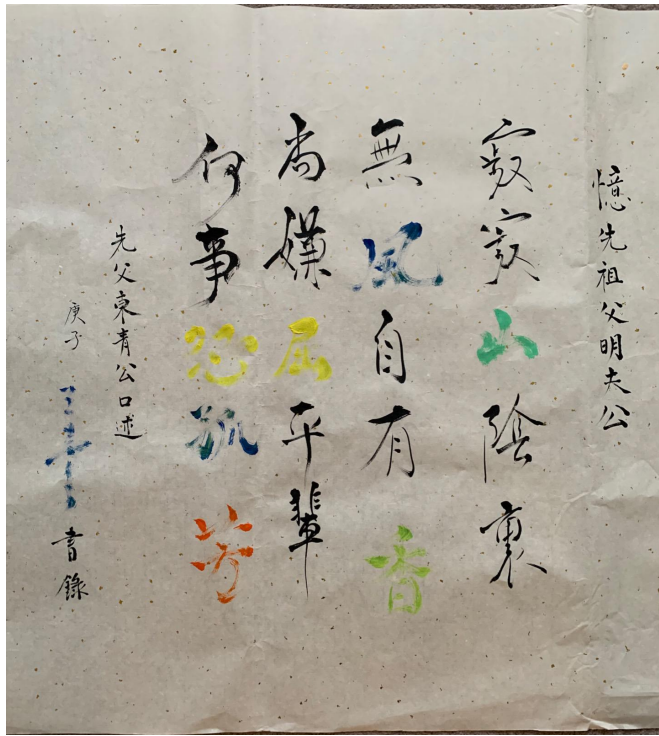 憶先祖父明夫公
寂寂山陰裏
無風自有香
尚嫌屈平輩
何事恐孤芳
先父東青公口述
庚子
書錄